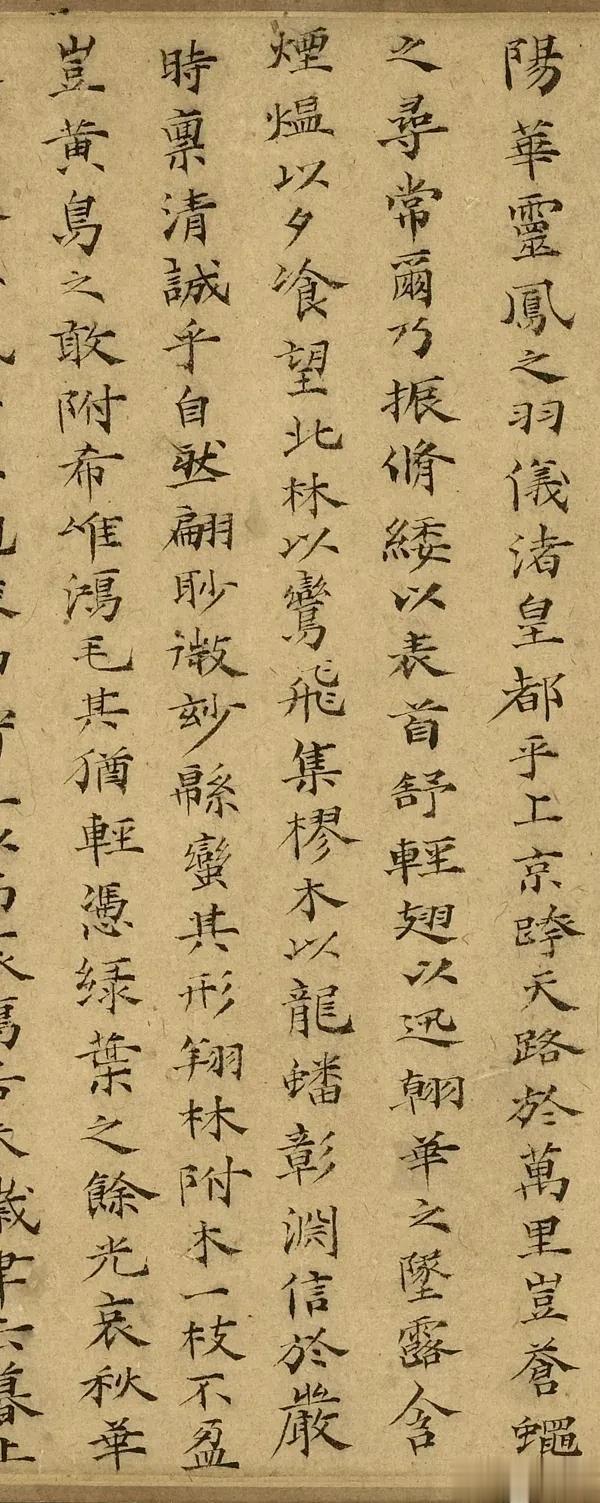 陽華靈鳳之羽儀渚皇都乎上京跨天路於萬里豈蒼蠅
之尋常爾乃振脩緌以表首舒輕翅以迅翰華之墬露含
煙熅以夕飡望北林以鸞飛集樛木以龍蟠彰淵信於嚴
時稟清誠乎自然翩眇微玅緜蠻其形翔林附木一枝不盈
豈黃鳥之敢附希唯鴻毛其猶輕憑綠葉之餘光哀秋華